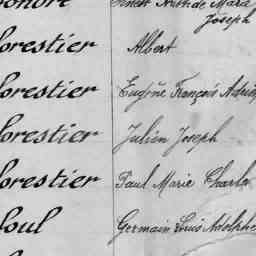 Joseph
orestier Albert
orestier Eugène François Adrien
orestier Julien Joseph
orestier Paul Marie Charles
oul Germain Louis Adolphe